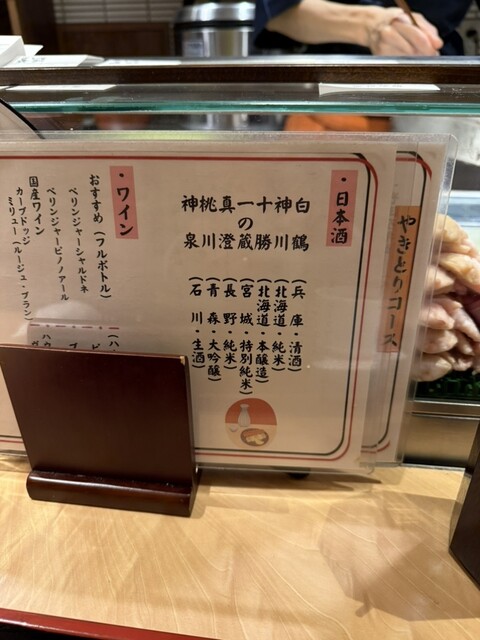 やきとりコース
・日本酒
白鶴(兵庫・清酒)
神川(北海道・純米)
十勝(北海道・本醸造)
一の蔵(宮城・特別純米)
真澄(長野・純米)
桃川(青森・大吟醸)
神泉(石川・生酒)
・ワイン
おすすめ(フルボトル)
ベリンジャーシャルドネ
ベリンジャーピノノアール
国産ワイン
カーブドッジ
ミリュー(ルージュ・ブラン)